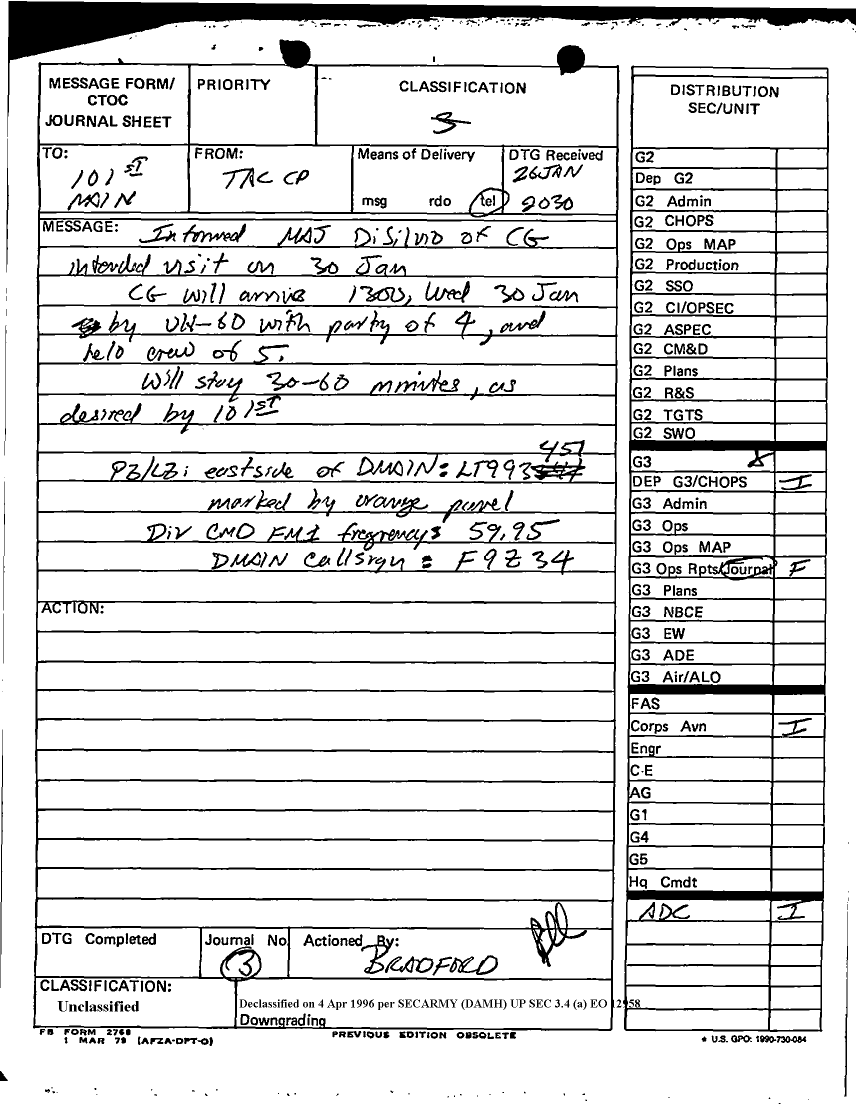 MESSAGE FORM/ CTOC JOURNAL SHEET
PRIORITY
CLASSIFICATION
S
DISTRIBUTION SEC/UNIT
TO: 101ST MAIN
FROM: TAC CP
Means of Delivery
msg rdo tel
DTG Received
26JAN
2030
MESSAGE: Informed MAJ DiSilvio of CG
intended visit on 30 Jan
CG will arrive 1300, Wed 30 Jan
by UH-60 with party of 4, and
helo crew of 5.
Will stay 30-60 minutes, as
desired by 101ST
457
PZ/LZ: eastside of DMAIN: LT993
marked by orange panel
Div CMD FM1 frequency: 59.95
DMAIN Callsign = F9Z34
ACTION:
DTG Completed
Journal No
3
Actioned By:
BRADFORD
CLASSIFICATION:
Unclassified
Declassified on 4 Apr 1996 per SECARMY (DAMH) UP SEC 3.4 (a) EO 12958
Downgrading
FB FORM 2768
1 MAR 79 (AFZA-DPT-O)
PREVIOUS EDITION OBSOLETE
G2
Dep G2
G2 Admin
G2 CHOPS
G2 Ops MAP
G2 Production
G2 SSO
G2 CI/OPSEC
G2 ASPEC
G2 CM&D
G2 Plans
G2 R&S
G2 TGTS
G2 SWO
G3 X
DEP G3/CHOPS I
G3 Admin
G3 Ops
G3 Ops MAP
G3 Ops Rpts/Journal F
G3 Plans
G3 NBCE
G3 EW
G3 ADE
G3 Air/ALO
FAS
Corps Avn I
Engr
C-E
AG
G1
G4
G5
Hq Cmdt
ADC I
* U.S. GPO: 1990-730-084